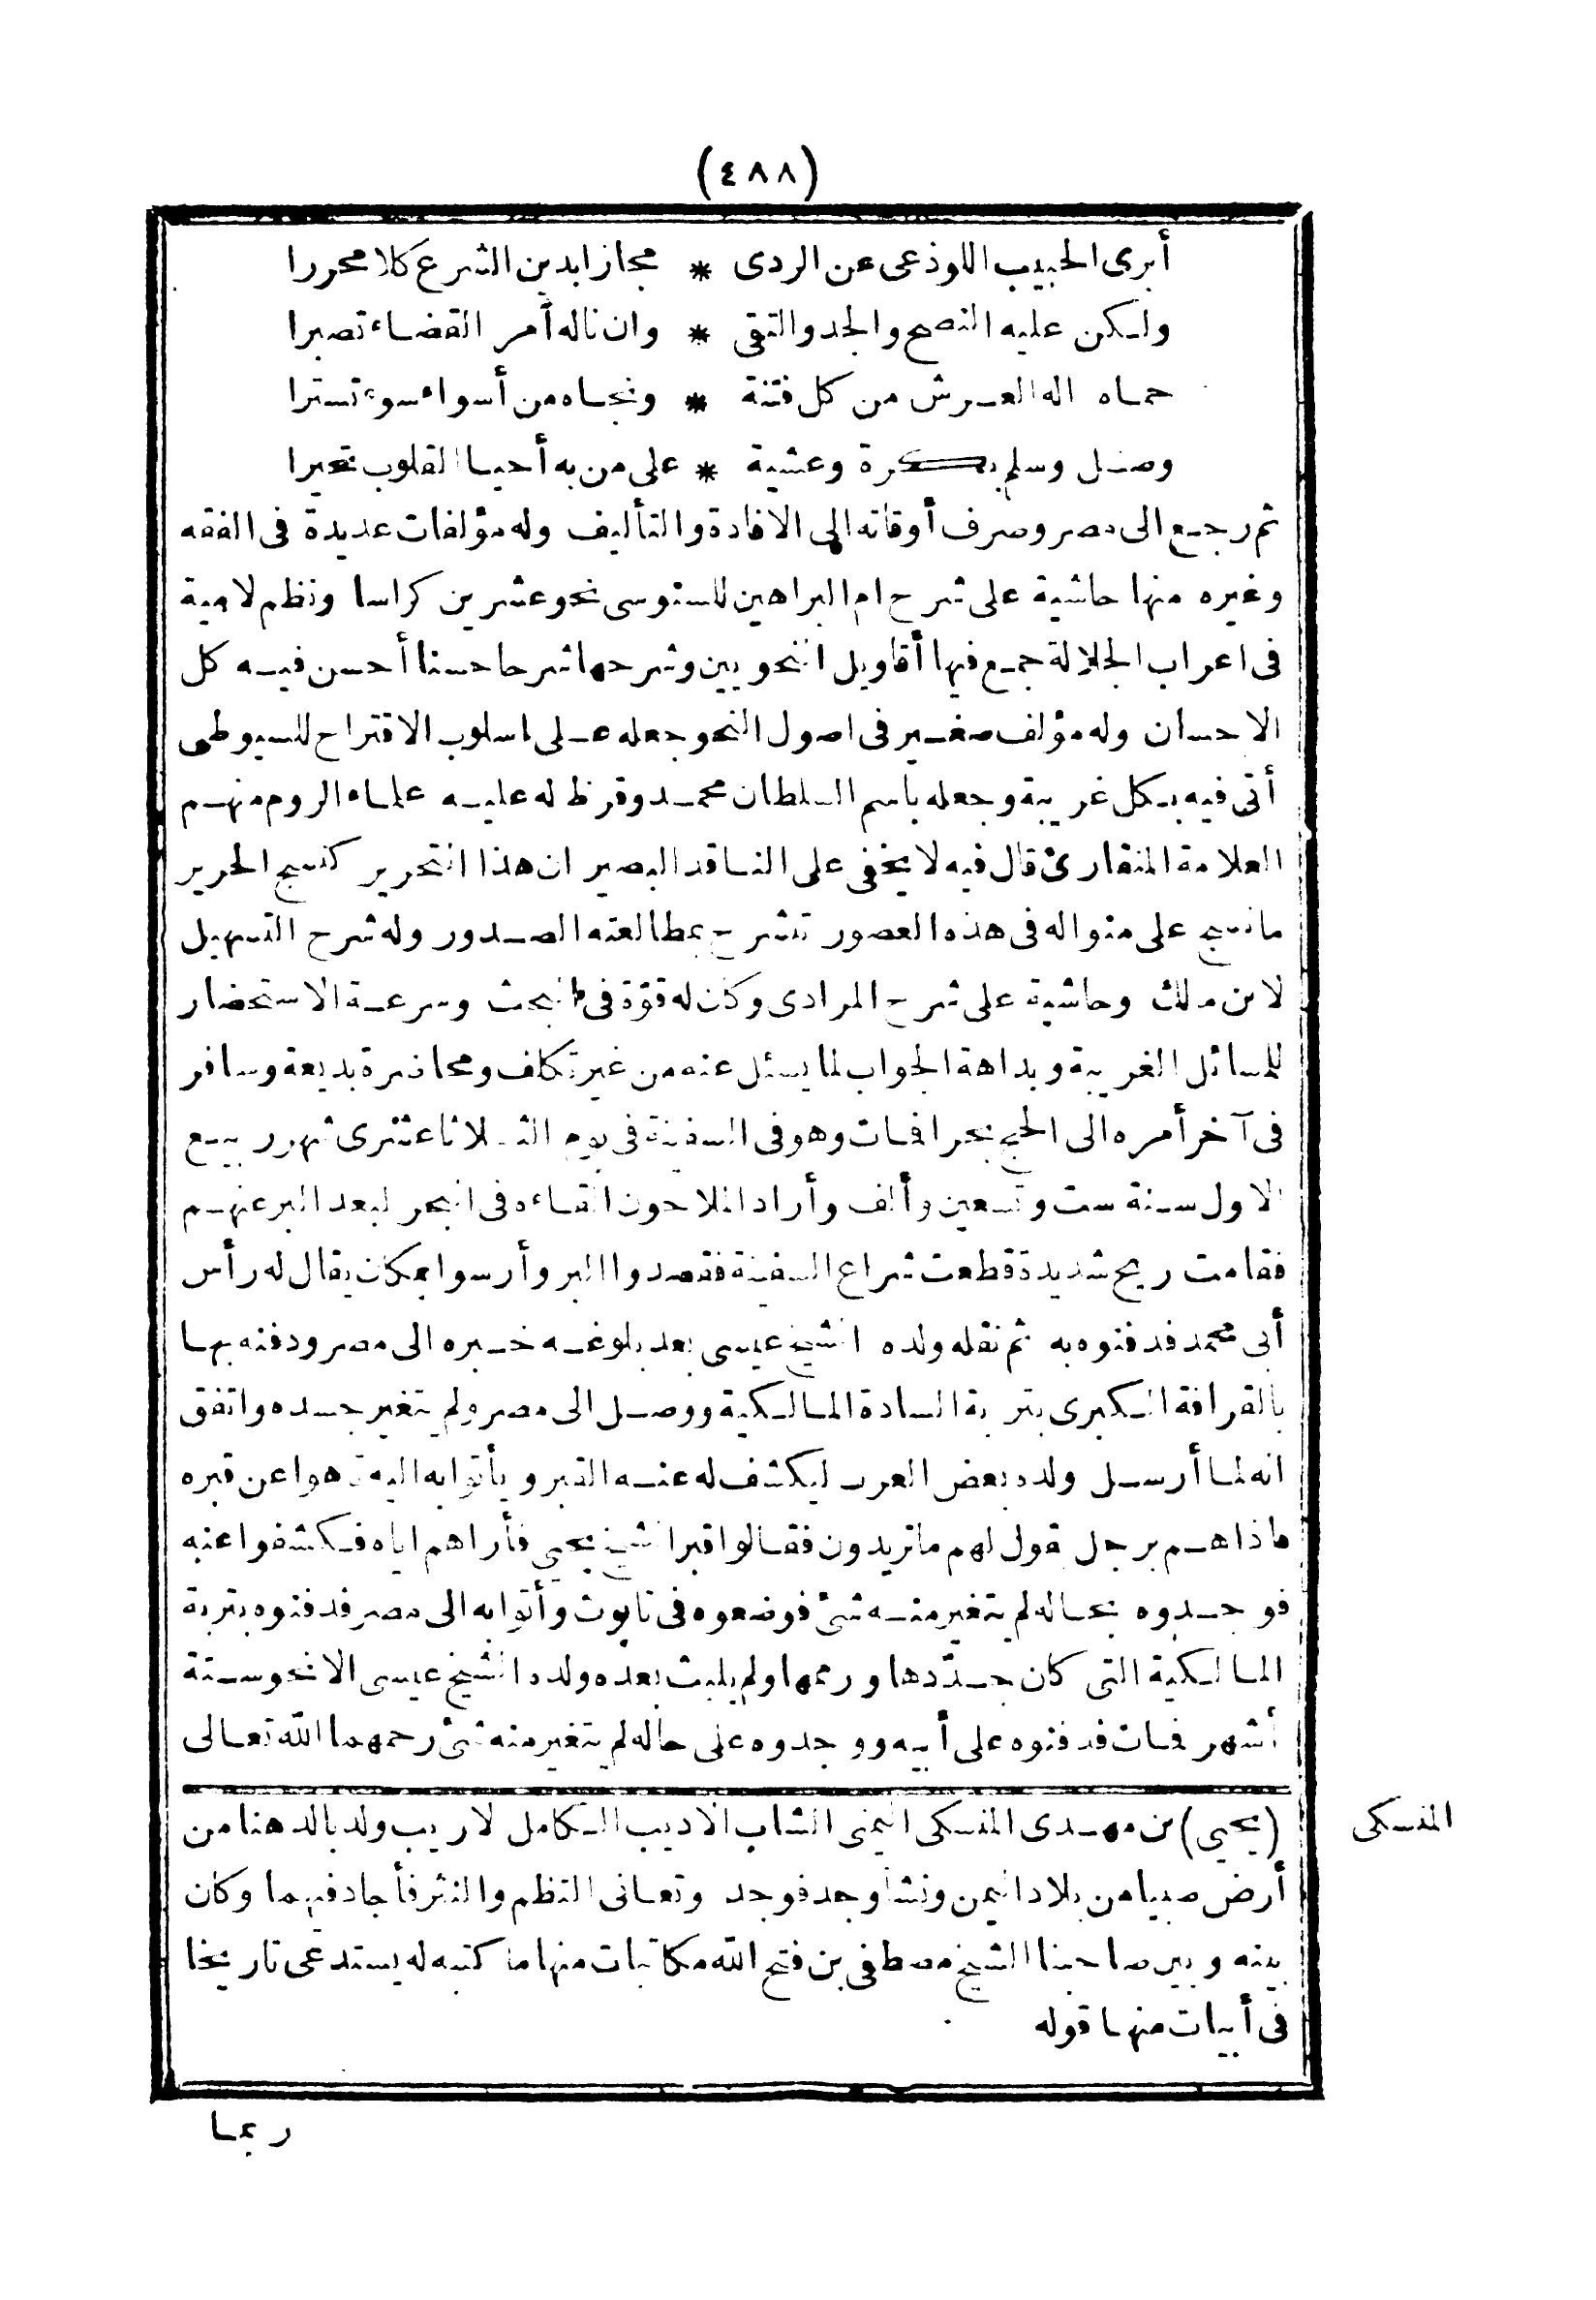 (٤٨٨)
أبرى الحبيب اللوذعى عن الردى * مجاز ابدين الشرع كلا محررا
ولكن عليه النصح والجد والتقى * وان ناله أمر القضاء تصبرا
حماه اله العرش من كل فتنة * ونجاه من أسواء سوء تسترا
وصل وسلم بكرة وعشية * على من به أحيا القلوب تحيرا
ثم رجع الى مصر وصرف أوقاته الى الافادة والتأليف وله مؤلفات عديدة فى الفقه
وغيره منها حاشية على شرح ام البراهين للسنوسى نحو عشرين كراسا ونظم لامية
فى اعراب الجلالة جمع فيها أقاويل النحويين وشرحها شرحا حسنا أحسن فيه كل
الاحسان وله مؤلف صغير فى اصول النحو جعله على اسلوب الاقتراح للسيوطى
أتى فيه بكل غريبة وجعله باسم السلطان محمد وقرظ له عليه علماء الروم منهم
العلامة المنقارى قال فيه لا يخفى على الناقد البصير ان هذا التحرير كنسج الحرير
ما نسج على منواله فى هذه العصور تنشرح بمطالعته الصدور وله شرح التسهيل
لابن مالك وحاشية على شرح المرادى وكان له قوّة فى البحث وسرعة الاستحضار
للمسائل الغريبة وبداهة الجواب لما يسئل عنه من غير تكلف ومحاضرة بديعة وسافر
فى آخر أمره الى الحج بحرا فمات وهو فى السفينة فى يوم الثلاثا عشرى شهر ربيع
الاول سنة ست وتسعين وألف وأراد الملاحون القاءه فى البحر لبعد البر عنهم
فقامت ريح شديدة قطعت شراع السفينة فقصدوا البر وأرسوا بمكان يقال له رأس
أبى محمد فدفنوه به ثم نقله ولده الشيخ عيسى بعد بلوغه خبره الى مصر ودفنه بها
بالقرافة الكبرى بتربة السادة المالكية ووصل الى مصر ولم يتغير جسده واتفق
انه لما أرسل ولده بعض العرب ليكشف له عنه القبر ويأتوا به اليه تاهوا عن قبره
فاذا هم برجل يقول لهم ما تريدون فقالوا قبر الشيخ يحيى فأراهم اياه فكشفوا عنه
فوجدوه بحاله لم يتغير منه شئ فوضعوه فى تابوت وأتوا به الى مصر فدفنوه بتربة
المالكية التى كان جدّدها ورممها ولم يلبث بعده ولده الشيخ عيسى الا نحو ستة
أشهر فمات فدفنوه على أبيه ووجدوه على حاله لم يتغير منه شئ رحمهما الله تعالى
المنسكى
(يحيى) بن مهدى المنسكى اليمنى الشاب الاديب الكامل لاريب ولد بالدهنا من
أرض صبيا من بلاد اليمن ونشأ وجد فوجد وتعانى النظم والنثر فأجاد فيهما وكان
بينه وبين صاحبنا الشيخ مصطفى بن فتح الله مكاتبات منها ما كتبه له يستدعى تاريخا
فى أبيات منها قوله
ربما